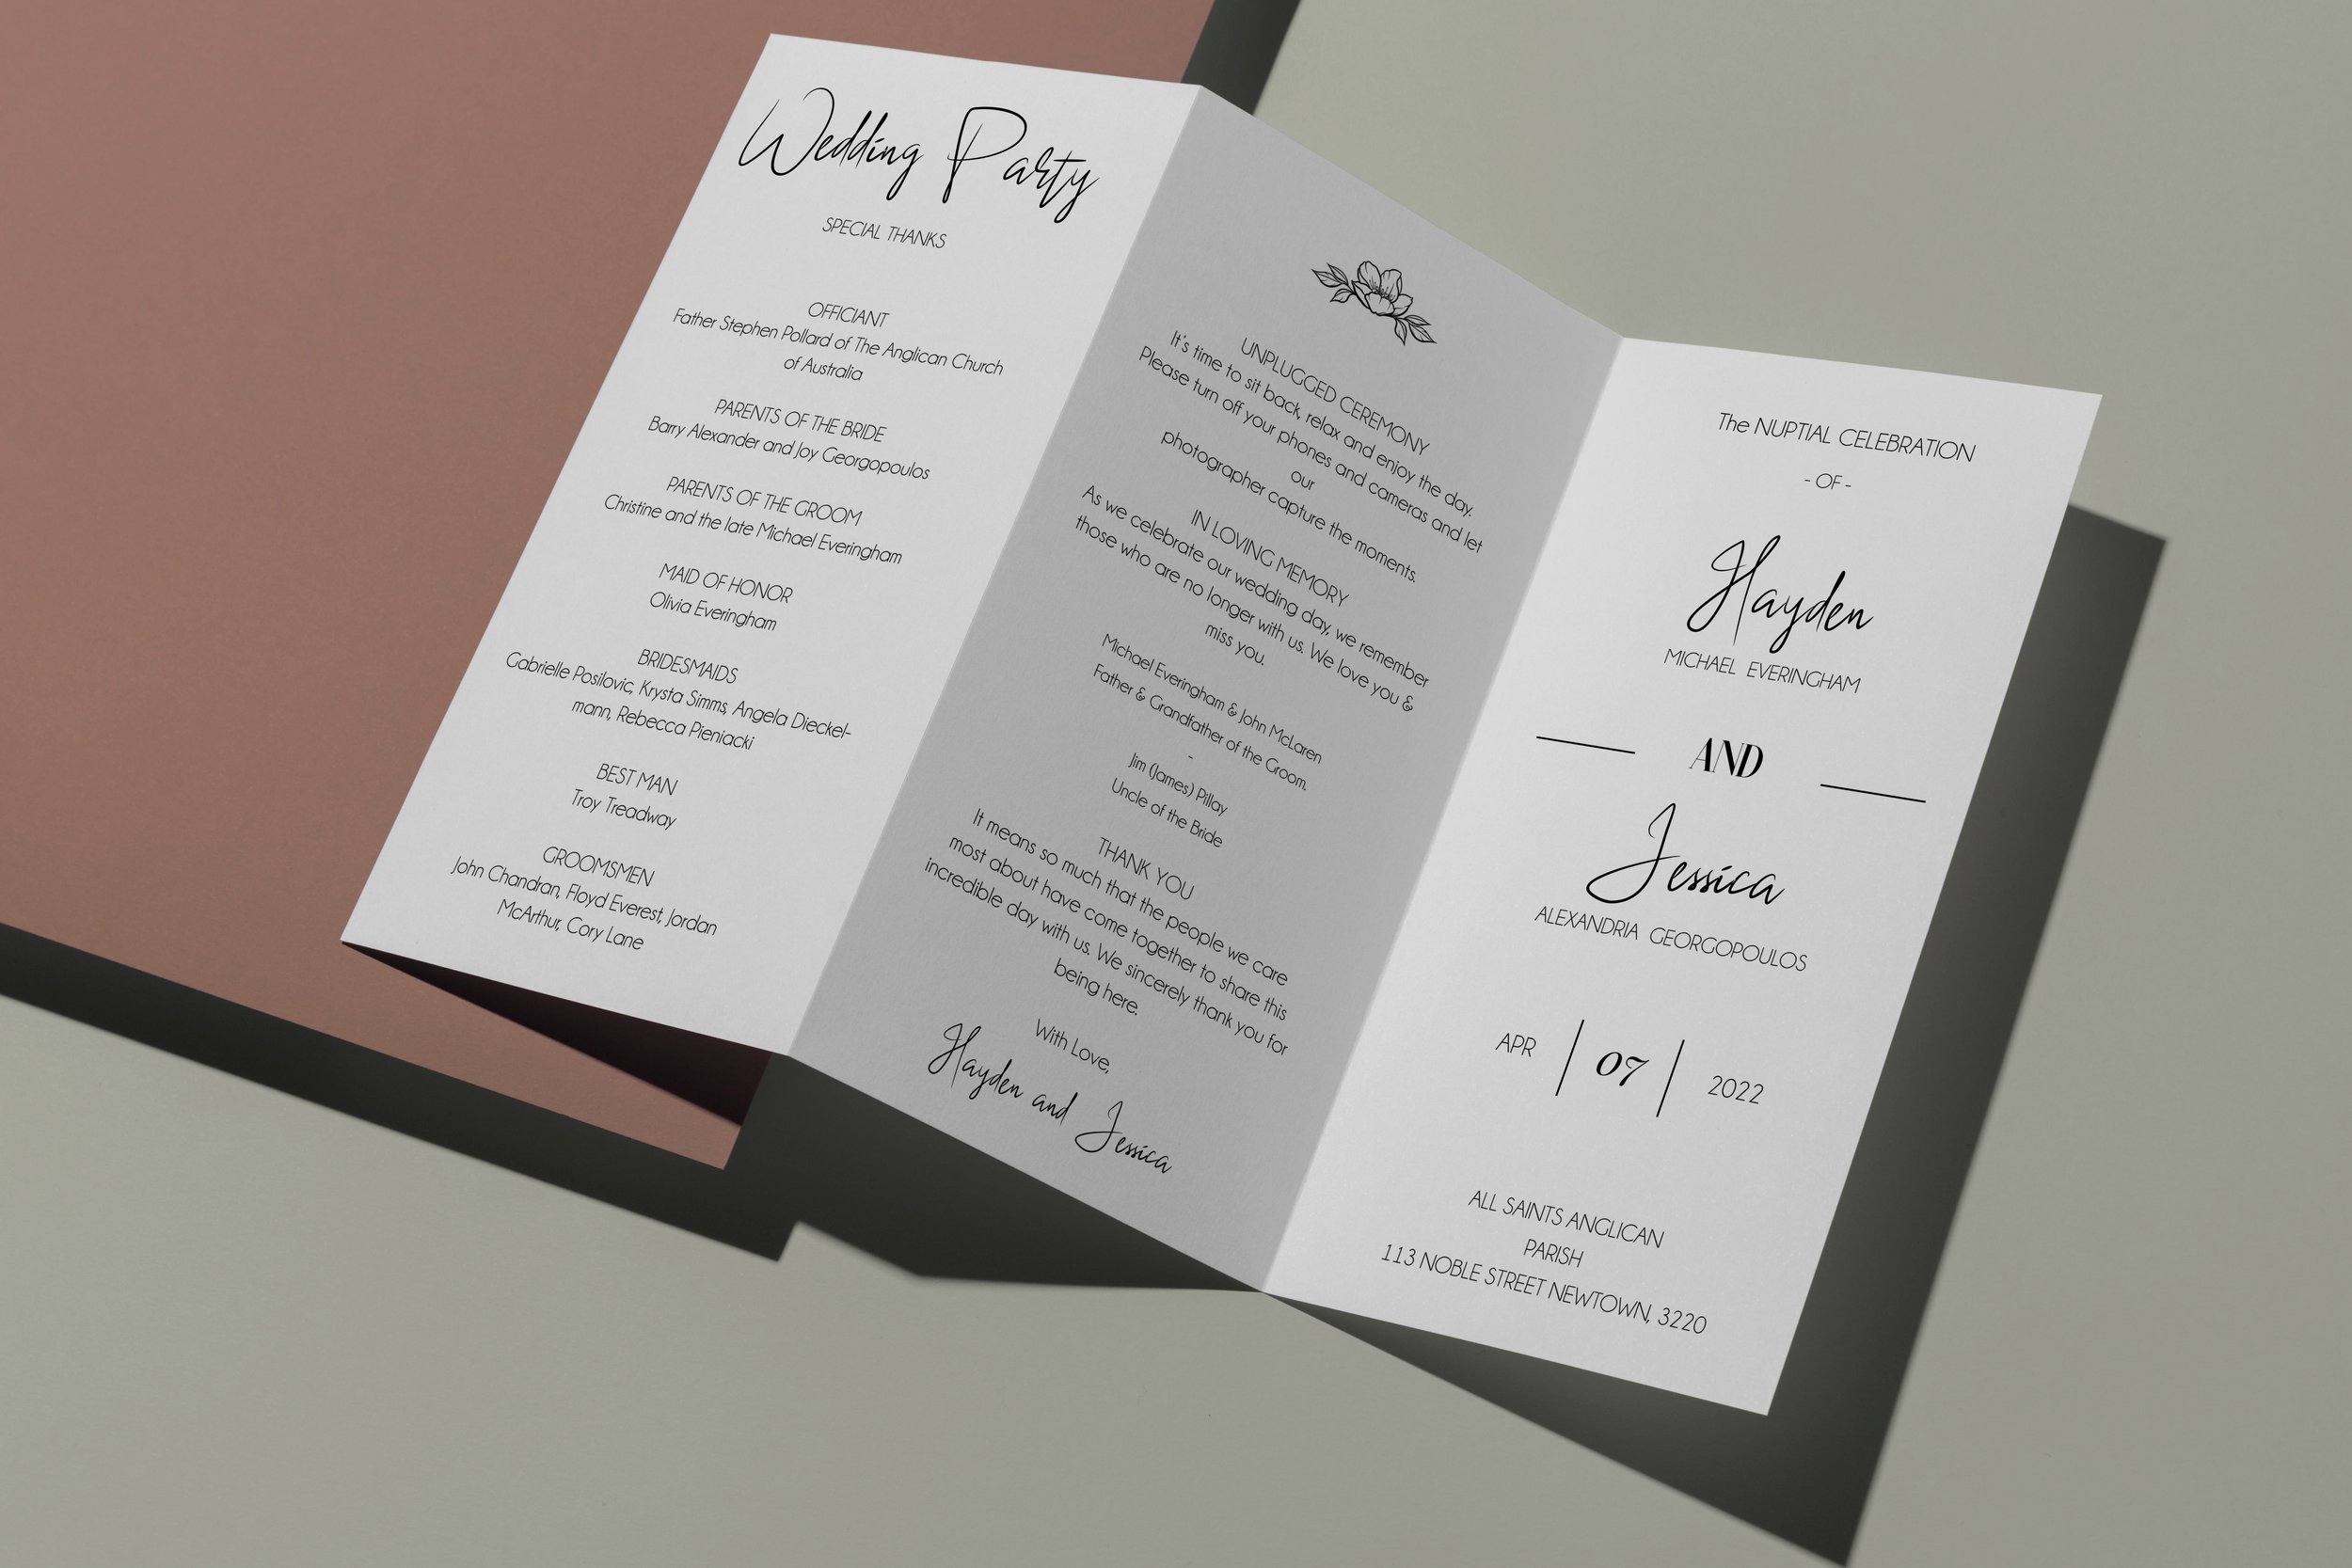 Wedding Party
SPECIAL THANKS
OFFICIANT
Father Stephen Pollard of The Anglican Church
of Australia
PARENTS OF THE BRIDE
Barry Alexander and Joy Georgopoulos
PARENTS OF THE GROOM
Christine and the late Michael Everingham
MAID OF HONOR
Olivia Everingham
BRIDESMAIDS
Gabrielle Posilovic, Krysta Simms, Angela Dieckel-
mann, Rebecca Pieniacki
BEST MAN
Troy Treadway
GROOMSMEN
John Chandran, Floyd Everest, Jordan
McArthur, Cory Lane
UNPLUGGED CEREMONY
It's time to sit back, relax and enjoy the day.
Please turn off your phones and cameras and let
our
photographer capture the moments.
IN LOVING MEMORY
As we celebrate our wedding day, we remember
those who are no longer with us. We love you &
miss you.
Michael Everingham & John McLaren
Father & Grandfather of the Groom.
-
Jim (James) Pillay
Uncle of the Bride
THANK YOU
It means so much that the people we care
most about have come together to share this
incredible day with us. We sincerely thank you for
being here.
With Love,
Hayden and Jessica
The NUPTIAL CELEBRATION
- OF -
Hayden
MICHAEL EVERINGHAM
AND
Jessica
ALEXANDRIA GEORGOPOULOS
APR | 07 | 2022
ALL SAINTS ANGLICAN
PARISH
113 NOBLE STREET NEWTOWN, 3220